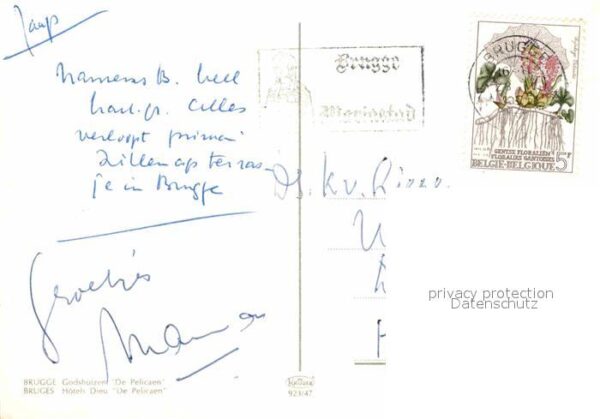 Jaap
Namens B. heel
hart. gr. Alles
verloopt prima
Zitten op terras-
je in Brugge
Groetjes
Mama
BRUGGE Godshuizen "De Pelicaen"
BRUGES Hôtels Dieu "De Pelicaen"
923/47
Brugge
Mariastad
BRUGGE
GENTSE FLORALIËN
FLORALIES GANTOISES
BELGIE-BELGIQUE 5F
privacy protection
Datenschutz